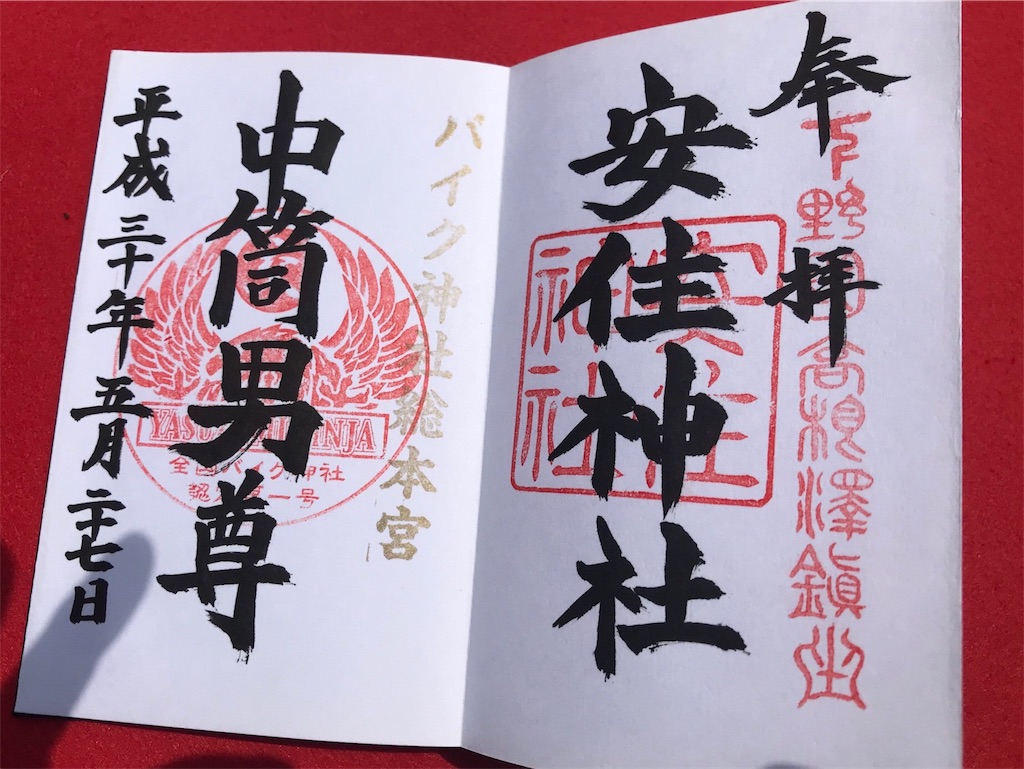 奉拝
下野國高根澤鎮坐
安住神社
安住
神社
バイク神社総本宮
中筒男尊
YASUZUMI JINJA
全国バイク神社
認定第一号
平成三十年五月二十七日